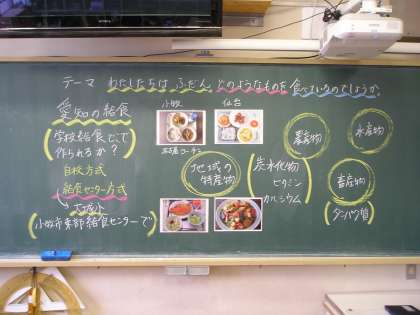 テーマ わたしたちは、ふだん、どのようなものを食べているのでしょうか。
愛知の給食
(学校給食どこで
作られるか?)
自校方式
給食センター方式
(小牧市東部給食センターで)
小牧
仙台
地域の
特産物
炭水化物
ビタミン
カルシウム
農産物
水産物
畜産物
(タンパク質)